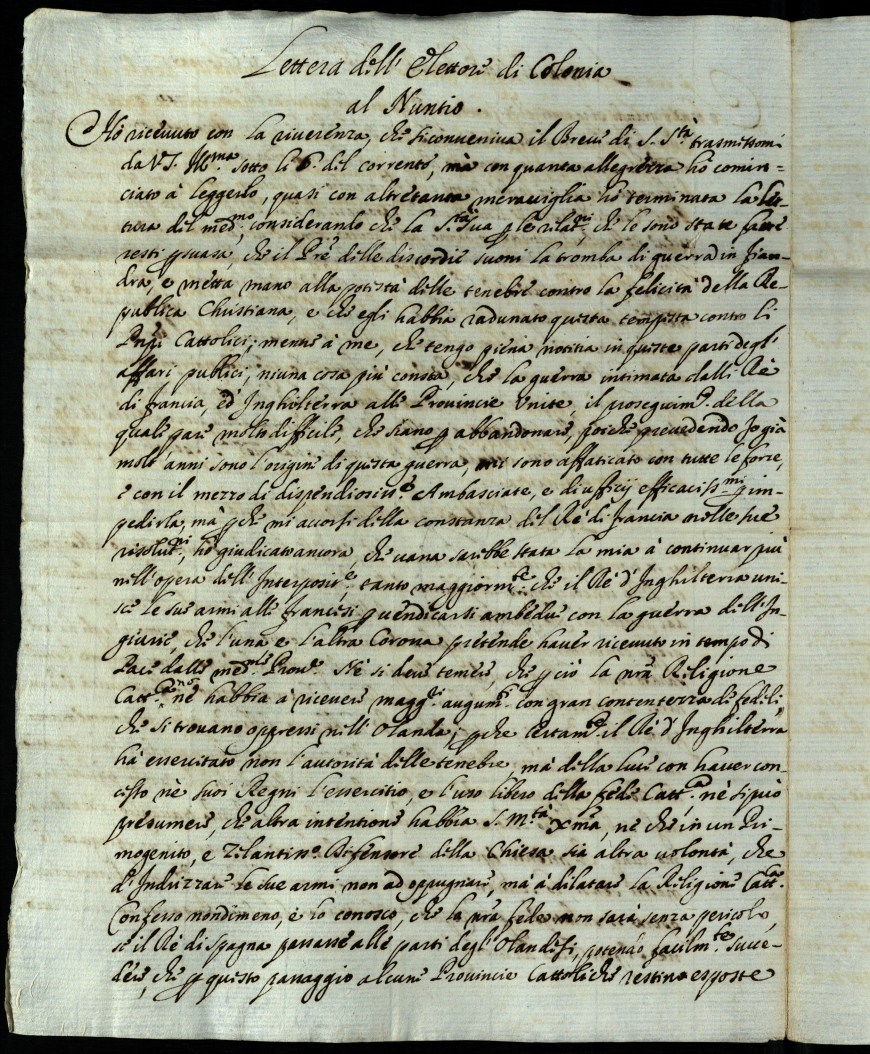 Lettera dell' Elettore di Colonia
al Nuntio.
Hò ricevuto con la riverenza, che si conveniva il Breve di S. Stà trasmessomi
da V.S. Illma sotto li 6. del corrente, mà con quanta allegrezza hò comin=
ciato à leggerlo, quasi con altretanta meraviglia hò terminata la let-
tura del medmo considerando che la Stà Sua p le relatni, che le sono state fatte
resti psuasa, che il Prè delle discordie suoni la tromba di guerra in Fian-
dra, e metta mano alla potestà delle tenebre contro la felicità della Re-
publica Christiana, e che egli habbia radunato questa tempesta contro li
Prpi Cattolici; mentre à me, che tengo piena notitia in queste parti degl'
affari publici, niuna cosa più consta, che la guerra intimata dalli Rè
di Francia, ed Inghilterra alle Provincie Unite, il proseguimto della
quale pare molto difficile, che siano p abbandonare, poiche prevedendo Io già
molt'anni sono l'origine di questa guerra, mi sono affaticato con tutte le forze,
e con il mezzo di dispendiosissme Ambasciate, e di ufficij efficacissmi p im-
pedirla, mà pche mi accorsi della constanza del Rè di Francia nelle sue
risolutni, hò giudicato ancora, che vana sarebbe stata la mia à continuar più
nell'opera dell'Interpositne, tanto maggiormte che il Rè d'Inghilterra uni-
sce le sue armi alle francesi p vendicarsi ambedue con la guerra dell'In-
giurie, che l'una e l'altra Corona pretende haver ricevuto in tempo di
Pace dalle medme Provre. Nè si deve temere, che p ciò la nrà Religione
Cattca non ne habbia à ricevere maggri augumti con gran contentezza di fedeli,
che si trovano oppressi nell'Olanda; pche certamte il Rè d'Inghilterra
hà essercitato non l'autorità delle tenebre, mà della luce con haver con-
cesso ne suoi Regni l'essercitio, e l'uso libero della fede Cattca, nè si può
presumere, che altra intentione habbia S. Mtà Xma, nè che in un Pri-
mogenito, e Zelantmo Difensore della Chiesa sia altra volontà, che
d'Indrizzare le sue armi non ad oppugnare, mà à dilatare la Religione Cattca.
Confesso nondimeno, e lo conosco, che la nrà fede non sarà senza pericolo,
se il Rè di Spagna passasse alle parti degl'Olandesi, potendo facilmte succe-
dere, che p questo passaggio alcune Provincie Cattoliche restino esposte